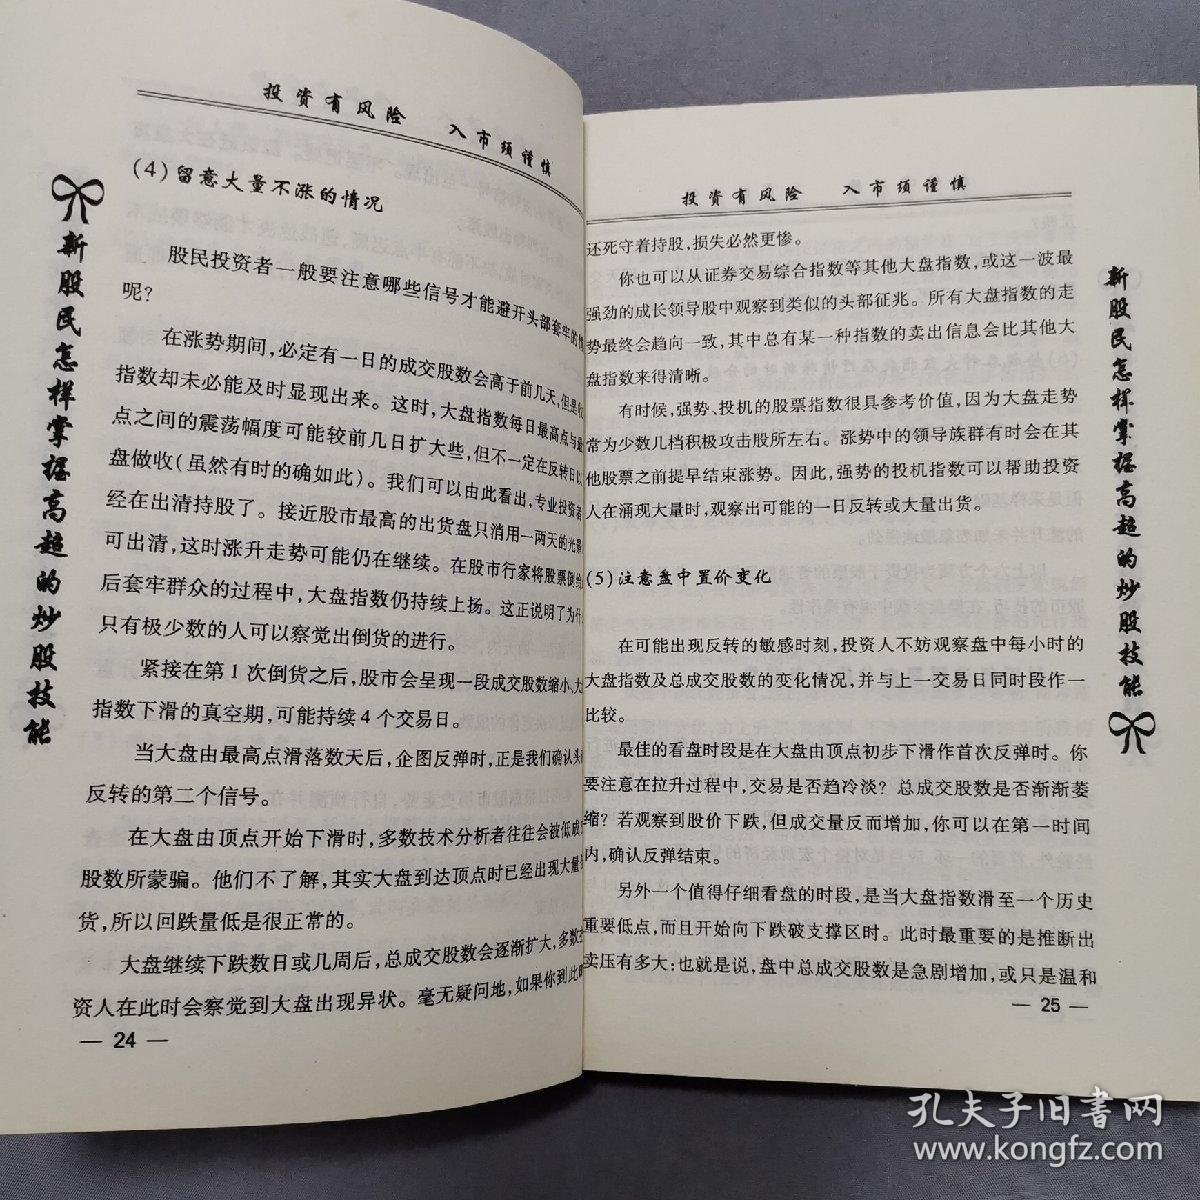 投资有风险　入市须谨慎
(4)留意大量不涨的情况
股民投资者一般要注意哪些信号才能避开头部套牢的
呢?
在涨势期间,必定有一日的成交股数会高于前几天,但是
指数却未必能及时显现出来。这时,大盘指数每日最高点与最
点之间的震荡幅度可能较前几日扩大些,但不一定在反转日以
盘做收(虽然有时的确如此)。我们可以由此看出,专业投资者
经在出清持股了。接近股市最高的出货盘只消用一两天的光景
可出清,这时涨升走势可能仍在继续。在股市行家将股票倒给
后套牢群众的过程中,大盘指数仍持续上扬。这正说明了为什
只有极少数的人可以察觉出倒货的进行。
紧接在第1次倒货之后,股市会呈现一段成交股数缩小、大
指数下滑的真空期,可能持续4个交易日。
当大盘由最高点滑落数天后,企图反弹时,正是我们确认头
反转的第二个信号。
在大盘由顶点开始下滑时,多数技术分析者往往会被低成
股数所蒙骗。他们不了解,其实大盘到达顶点时已经出现大量
货,所以回跌量低是很正常的。
大盘继续下跌数日或几周后,总成交股数会逐渐扩大,多数
资人在此时会察觉到大盘出现异状。毫无疑问地,如果你到此
— 24 —
新股民怎样掌握高超的炒股技能
投资有风险　入市须谨慎
还死守着持股,损失必然更惨。
你也可以从证券交易综合指数等其他大盘指数,或这一波最
强劲的成长领导股中观察到类似的头部征兆。所有大盘指数的走
势最终会趋向一致,其中总有某一种指数的卖出信息会比其他大
盘指数来得清晰。
有时候,强势、投机的股票指数很具参考价值,因为大盘走势
常为少数几档积极攻击股所左右。涨势中的领导族群有时会在其
他股票之前提早结束涨势。因此,强势的投机指数可以帮助投资
人在涌现大量时,观察出可能的一日反转或大量出货。
(5)注意盘中置价变化
在可能出现反转的敏感时刻,投资人不妨观察盘中每小时的
大盘指数及总成交股数的变化情况,并与上一交易日同时段作一
比较。
最佳的看盘时段是在大盘由顶点初步下滑作首次反弹时。你
要注意在拉升过程中,交易是否趋冷淡?总成交股数是否渐渐萎
缩?若观察到股价下跌,但成交量反而增加,你可以在第一时间
内,确认反弹结束。
另外一个值得仔细看盘的时段,是当大盘指数滑至一个历史
重要低点,而且开始向下跌破支撑区时。此时最重要的是推断出
卖压有多大:也就是说,盘中总成交股数是急剧增加,或只是温和
— 25 —
新股民怎样掌握高超的炒股技能
孔夫子旧书网
www.kongfz.com